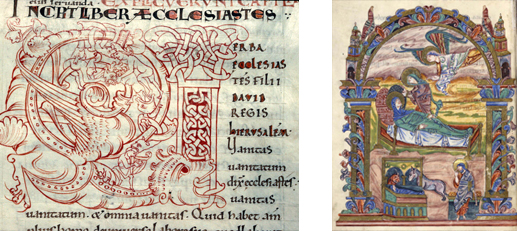 INCPIT LIBER ÆCCLESIASTES
ERBA
ECCLESIAS
TES FILII
DAVID
REGIS
HIERUSALEM.
Vanitas
vanitatum
dix ecclesiastes
vanitas
vanitatum. & omnia vanitas. Quid habet am